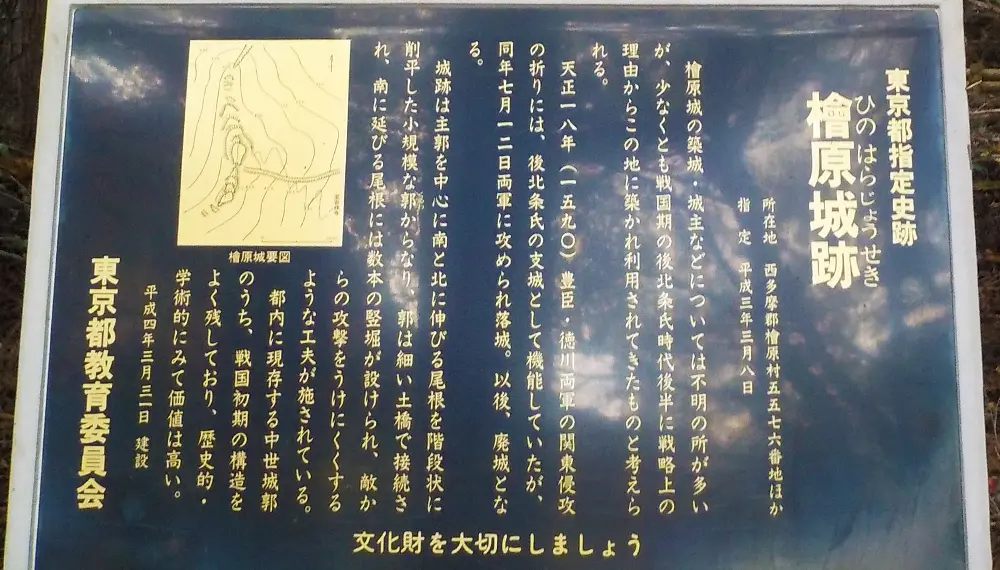 東京都指定史跡
ひのはらじょうせき
檜原城跡
所在地 西多摩郡檜原村五五七六番地ほか
指定 平成三年三月八日
檜原城の築城・城主などについては不明の所が多い
が、少なくとも戦国期の後北条氏時代後半に戦略上の
理由からこの地に築かれ利用されてきたものと考えら
れる。
天正一八年(一五九〇)豊臣・徳川両軍の関東侵攻
の折りには、後北条氏の支城として機能していたが、
同年七月一二日両軍に攻められ落城。以後、廃城とな
る。
城跡は主郭を中心に南と北に伸びる尾根を階段状に
削平した小規模な郭からなり、郭は細い土橋で接続さ
れ、南に延びる尾根には数本の竪堀が設けられ、敵か
らの攻撃をうけにくくする
ような工夫が施されている。
都内に現存する中世城郭
のうち、戦国初期の構造を
よく残しており、歴史的・
学術的にみて価値は高い。
平成四年三月三一日 建設
東京都教育委員会
檜原城要図
文化財を大切にしましょう